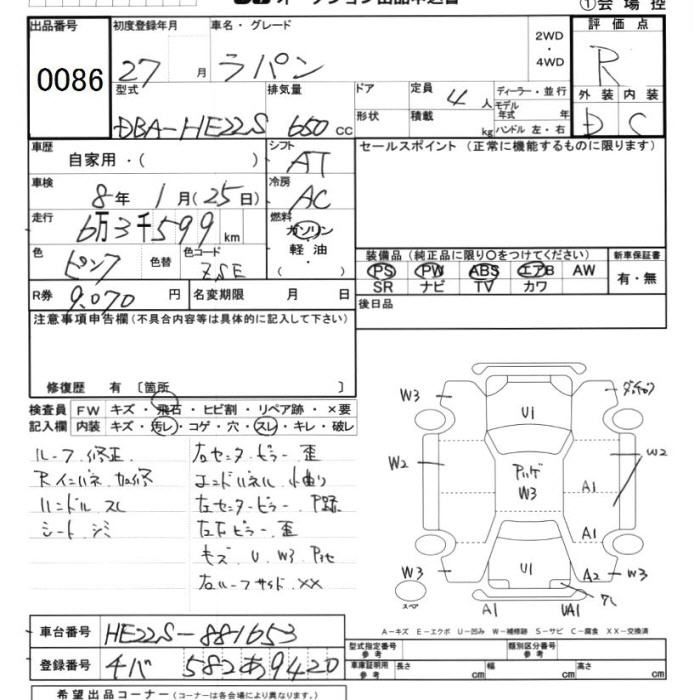 オークション出品申込書
①会場控
出品番号
0086
初度登録年月
27 月
車名・グレード
ラパン
2WD
・
4WD
評価点
R
型式
DBA-HE22S
排気量
660 cc
ドア
形状
定員
4 人
積載
kg
ディーラー・並行
モデル年式 年
ハンドル 左・右
外装 内装
D C
車歴
自家用・( )
シフト
AT
セールスポイント (正常に機能するものに限ります)
車検
8年 1月(25日)
冷房
AC
走行
6万3千599 km
燃料
ガソリン
軽油
( )
色
ピンク
色替
色コード
ZSE
装備品 (純正品に限り〇をつけてください)
PS PW ABS エアB AW
SR ナビ TV カワ
新車保証書
有・無
R券
9,070 円
名変期限 月 日
後日品
注意事項申告欄(不具合内容等は具体的に記入して下さい)
修復歴 有 〔箇所 〕
検査員
記入欄
FW キズ・飛石・ヒビ割・リペア跡・×要
内装 キズ・汚レ・コゲ・穴・スレ・キレ・破レ
ルーフ.修正.
Rインパネ.加修
ハンドル スレ
シート.シミ
左センターピラー.歪
エンドパネル.小曲り
左センターピラー.P跡
左F ピラー.歪
キズ.U.W3.
右ルーフサイド.XX
W3
U1
W2
W2
W3
A1
A1
W3
U1
A2
W3
スペア
A1
UA1
A-キズ E-エクボ U-凹み W-補修跡 S-サビ C-腐食 XX-交換済
車台番号
HE22S-881653
登録番号
チバ 582あ9420
型式指定番号
参考
類別区分番号
参考
車庫証明用
参考
長さ cm
幅 cm
高さ cm
希望出品コーナー (コーナーは各会場により異なります。)